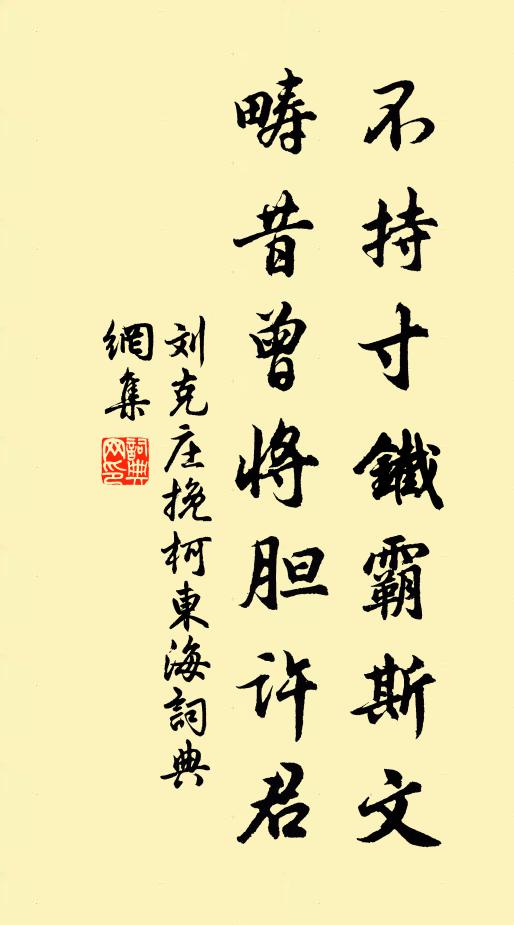 不持寸鐵霸斯文
疇昔曾將胆许君
刘克庄挽柯東海詞典
網集
詞典
网印